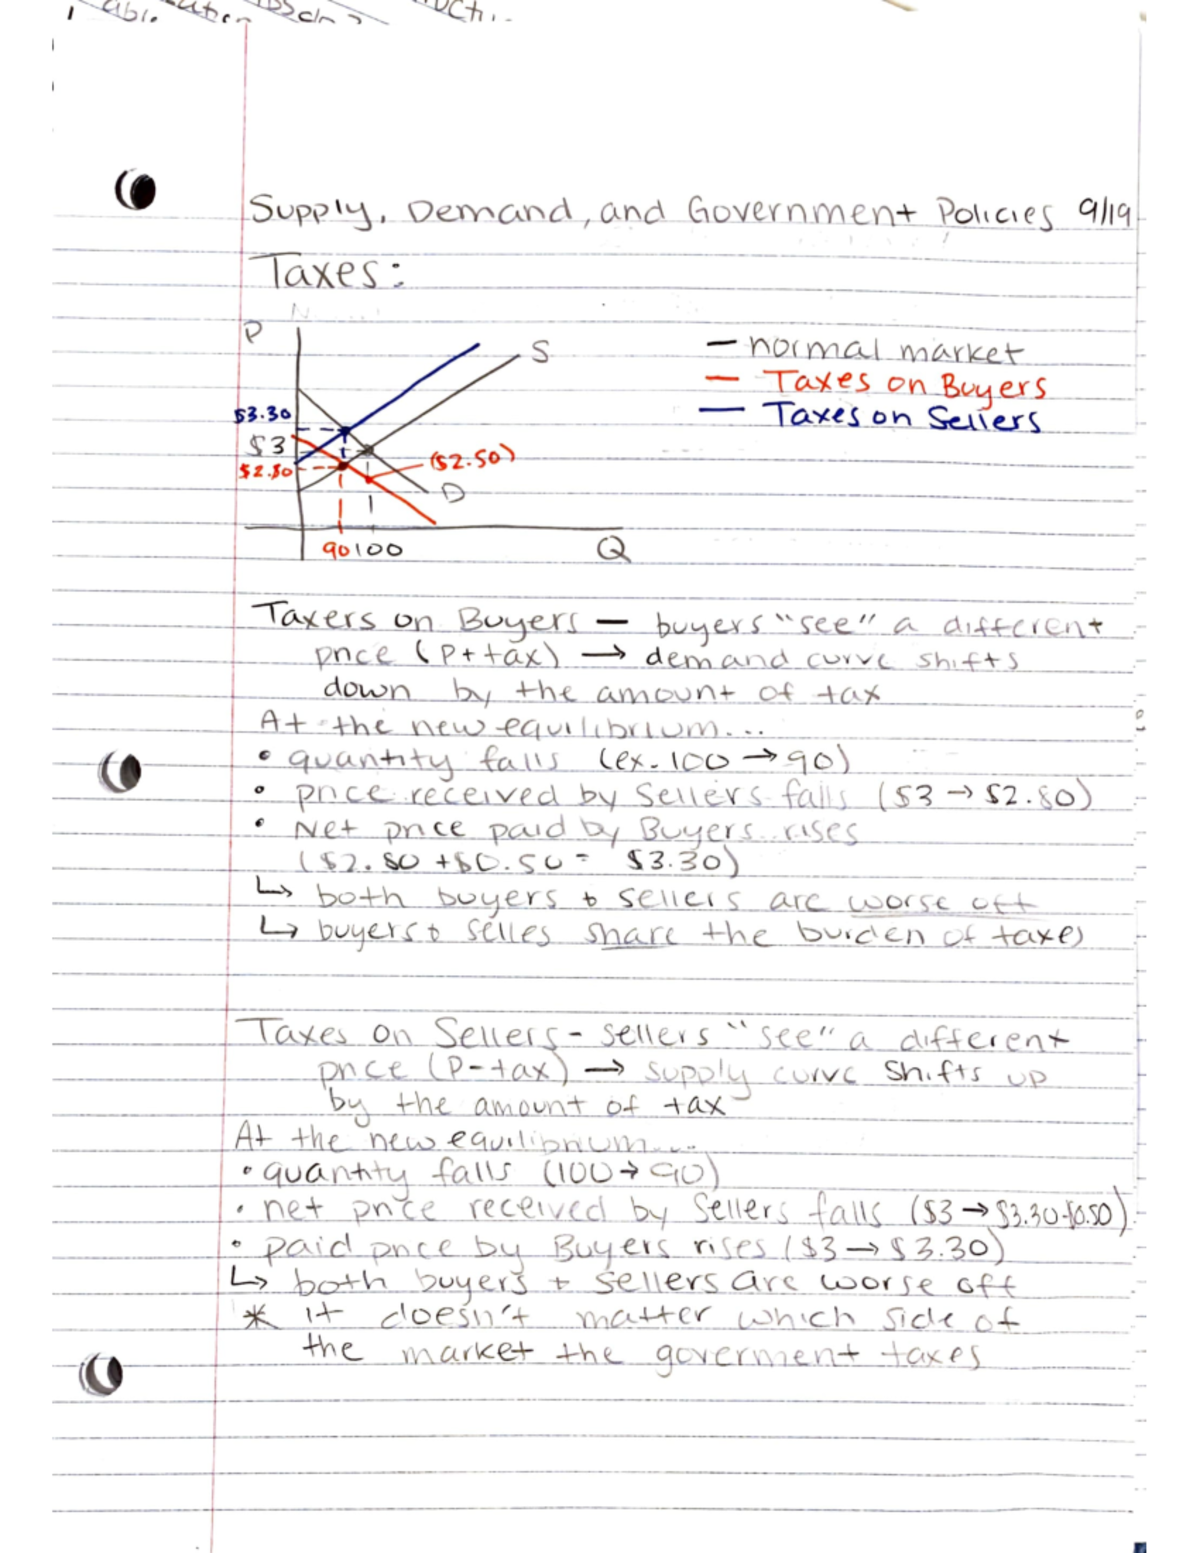 Supply, Demand, and Government Policies 9/19
Taxes:
P
S
— normal market
— Taxes on Buyers
— Taxes on Sellers
$3.30
$3
$2.80
($2.50)
D
90 100
Q
Taxers on Buyers — buyers "see" a different
price (P+tax) → demand curve shifts
down by the amount of tax
At the new equilibrium...
• quantity falls (ex. 100 → 90)
• price received by Sellers falls ($3 → $2.80)
• Net price paid by Buyers rises
($2.80 + $0.50 = $3.30)
↳ both buyers + sellers are worse off
↳ buyers + selles share the burden of taxes
Taxes on Sellers - sellers "see" a different
price (P-tax) → supply curve shifts up
by the amount of tax
At the new equilibrium...
• quantity falls (100 → 90)
• net price received by Sellers falls ($3 → $3.30-$0.50)
• paid price by Buyers rises ($3 → $3.30)
↳ both buyers + sellers are worse off
* it doesn't matter which side of
the market the goverment taxes